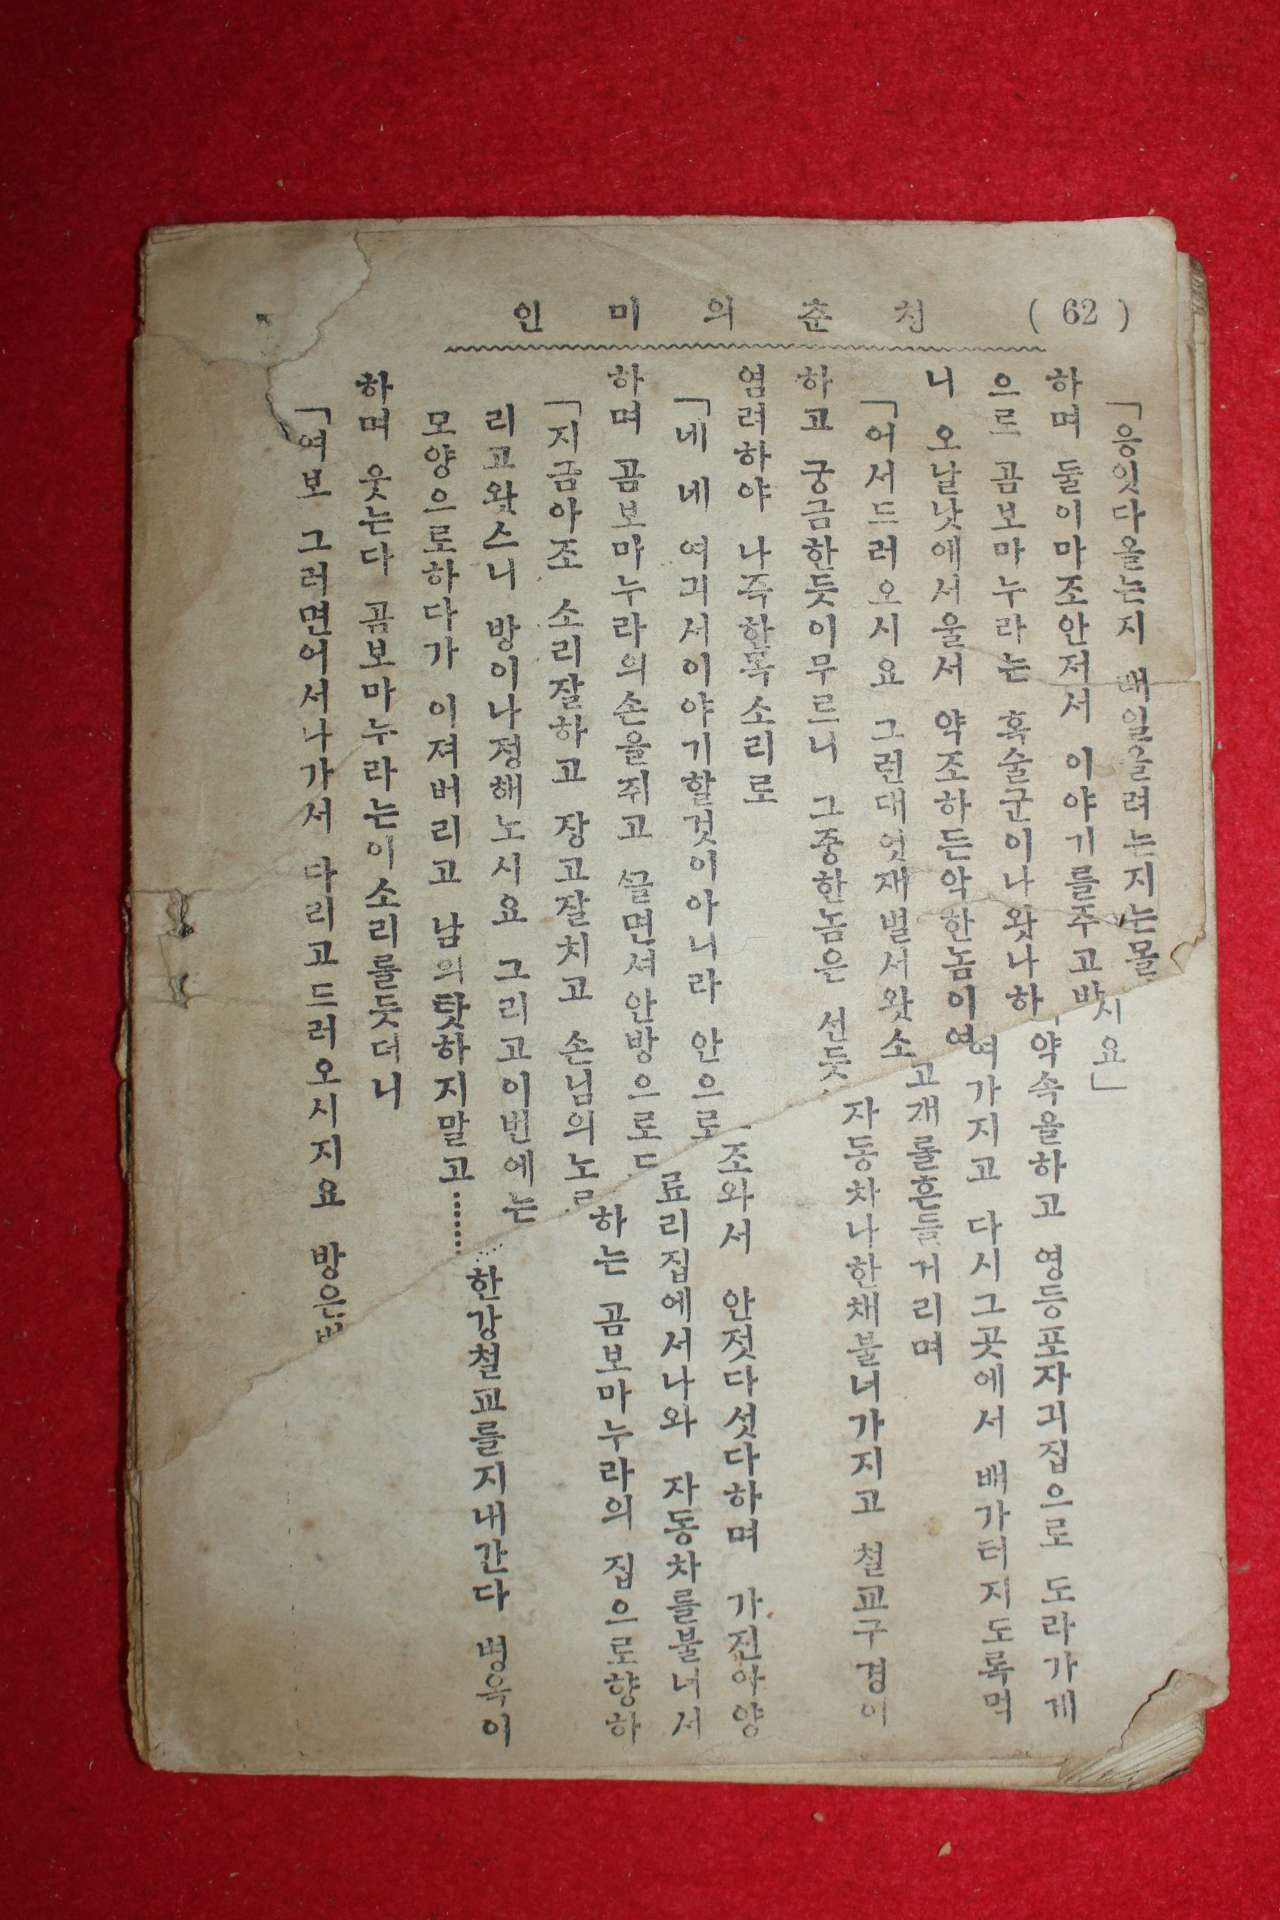 ( 62 ) 청춘의미인
「응잇다올는지 래일올려는지는몰
하며 둘이마조안저서 이야기를주고바
으르 곰보마누라는 흑술군이나왓나하
니 오날낫에서울서 약조하든악한놈이여
「어서드러오시요 그런대엇재벌서왓소
하고 궁금한듯이무르니 그중한놈은 선듯
염려하야 나즉한목소리로
「네 네 여긔서이야기할것이아니라 안으로
하며 곰보마누라의손을쥐고 끌면셔안방으로드
「지금아조 소리잘하고 장고잘치고 손님의노
리고왓스니 방이나정해노시요 그리고이번에는
모양으로하다가 이져버리고 남의탓하지말고……
하며 웃는다 곰보마누라는이소리를듯더니
「여보 그러면어서나가서 다리고드러오시지요 방은
시요」
약속을하고 영등포자긔집으로 도라가게
여가지고 다시그곳에서 배가터지도록먹
고개를흔들거리며
자동차나한채불너가지고 철교구경이
조와서 안젓다섯다하며 가진아양
료리집에서나와 자동차를불너서
하는 곰보마누라의 집으로향하
한강철교를지내간다 명옥이